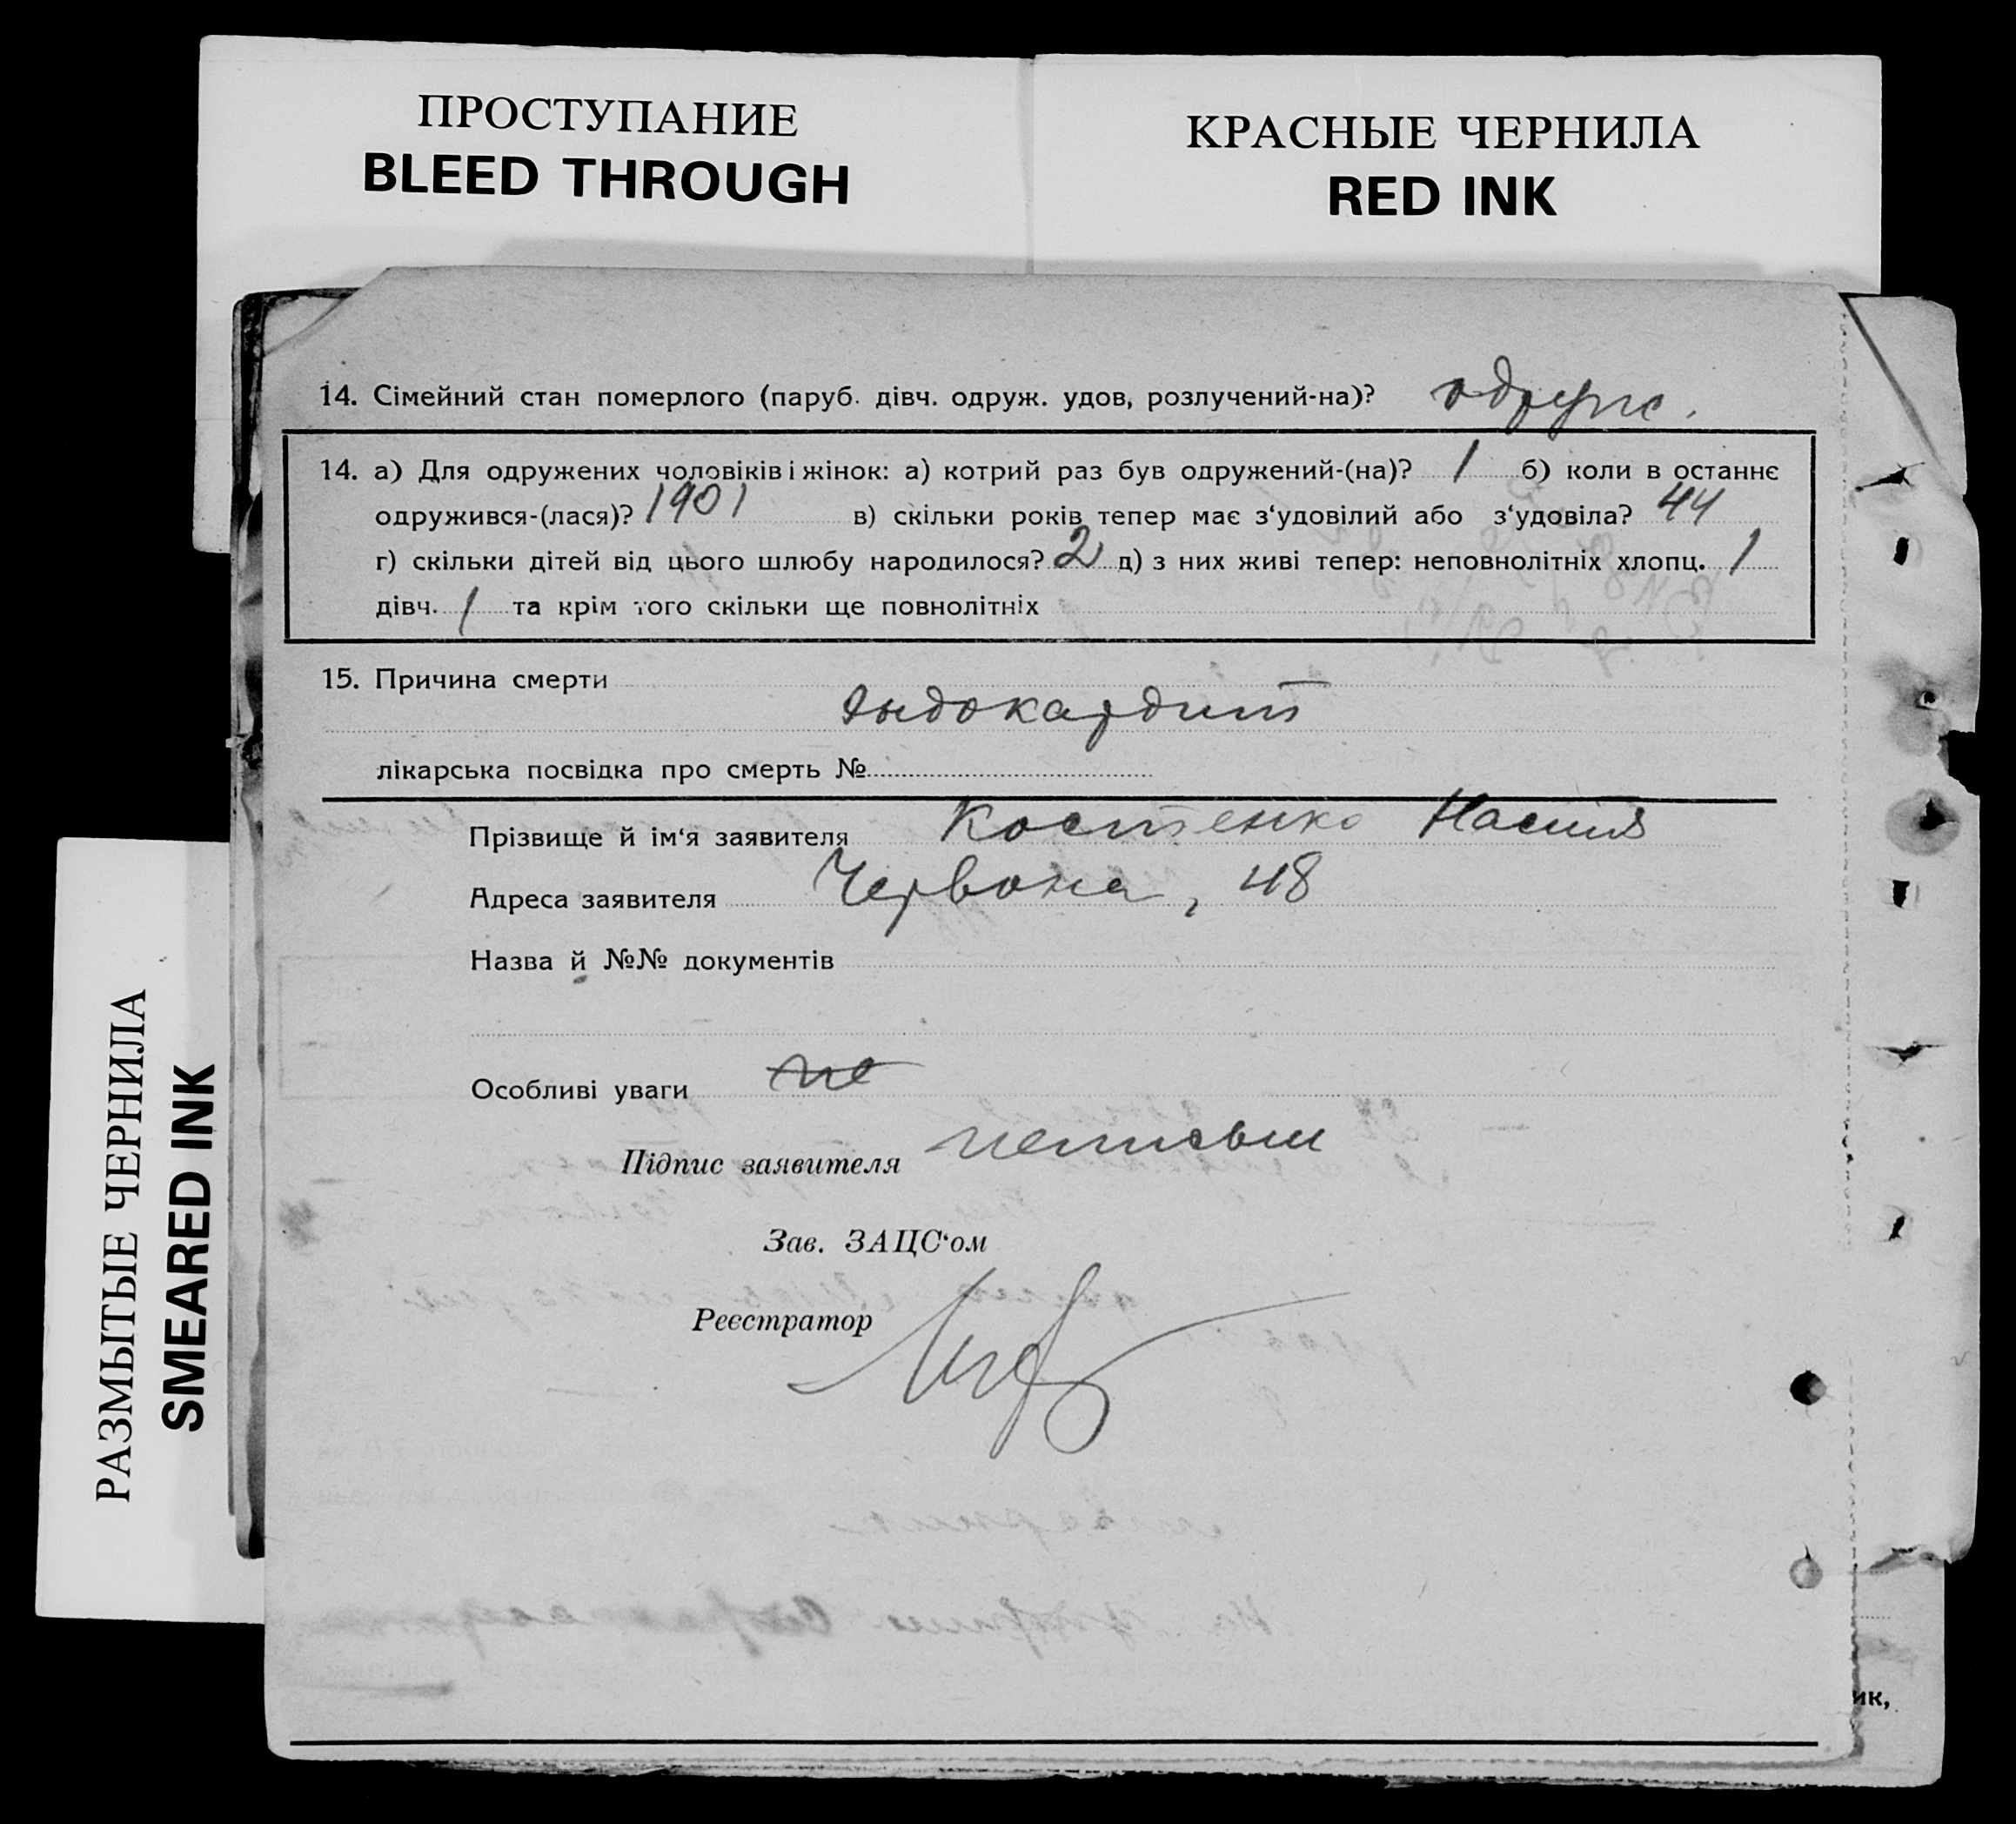 ПРОСТУПАНИЕ
BLEED THROUGH
КРАСНЫЕ ЧЕРНИЛА
RED INK
14. Сімейний стан померлого (паруб. дівч. одруж. удов, розлучений-на)? одруж.
14. а) Для одружених чоловіків і жінок: а) котрий раз був одружений-(на)? 1 б) коли в останнє
одружився-(лася)? 1901 в) скільки років тепер має з‘удовілий або з‘удовіла? 44
г) скільки дітей від цього шлюбу народилося? 2 д) з них живі тепер: неповнолітніх хлопц. 1
дівч. 1 та крім того скільки ще повнолітніх
15. Причина смерти
Эндокардит
лікарська посвідка про смерть №
Прізвище й ім‘я заявителя Костенко Настя
Адреса заявителя Червона, 48
Назва й №№ документів
Особливі уваги
Підпис заявителя неписьм
Зав. ЗАЦС‘ом
Реєстратор
РАЗМЫТЫЕ ЧЕРНИЛА
SMEARED INK
ик,